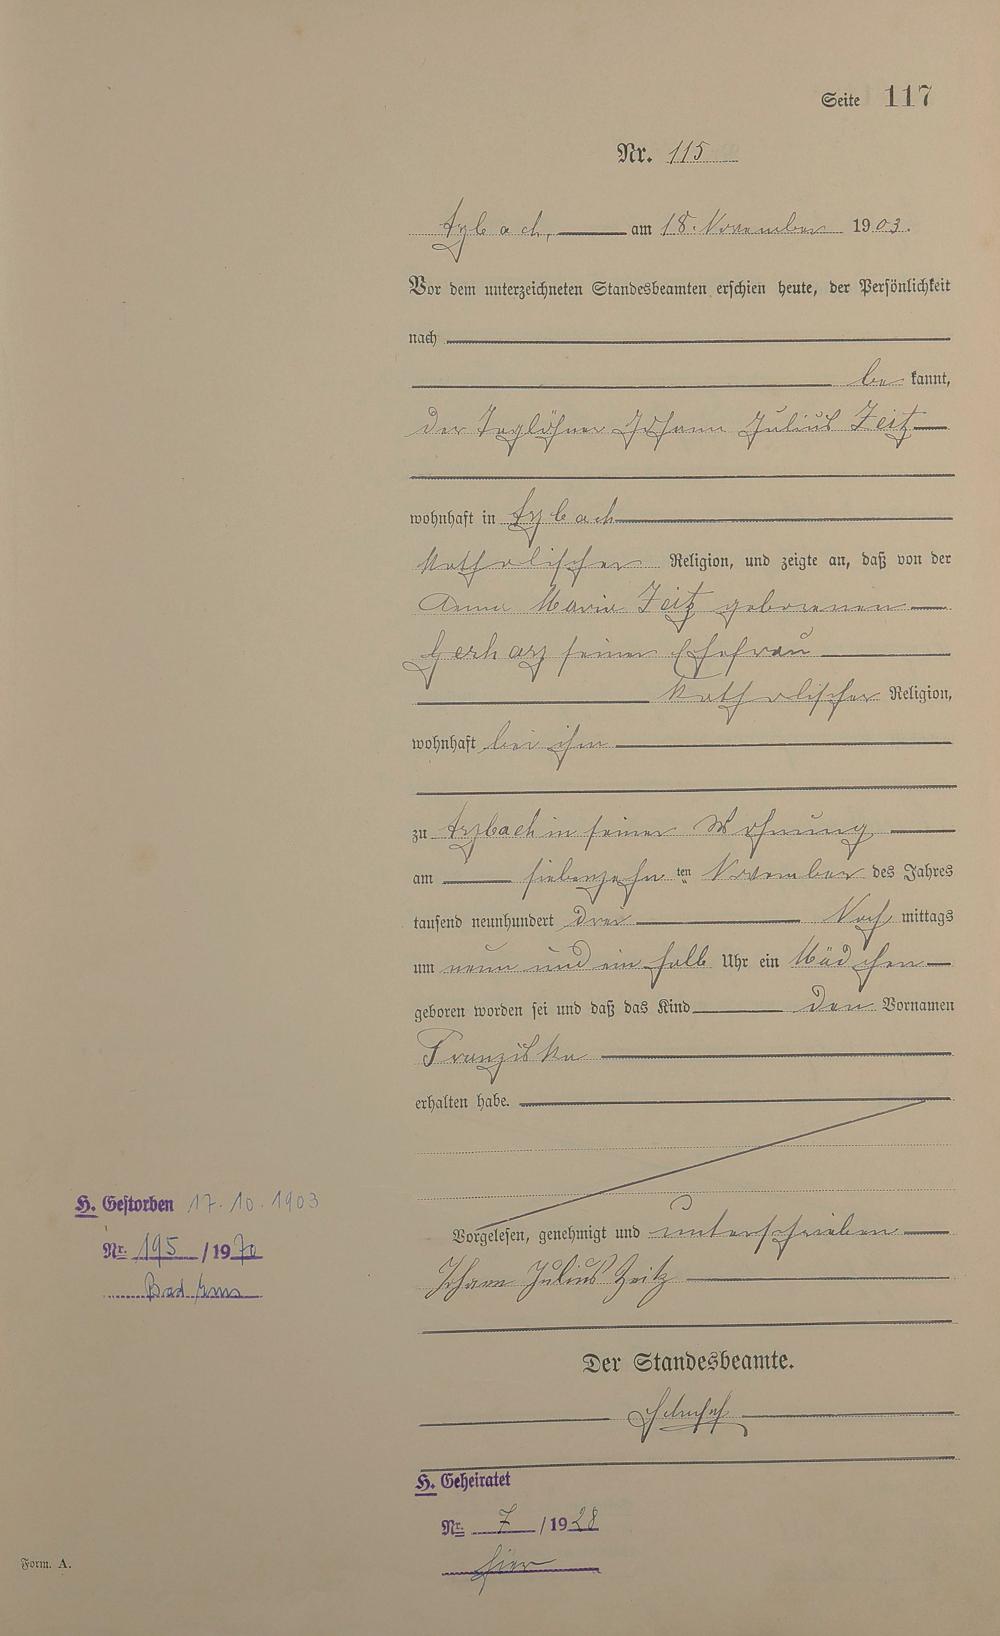 Seite 117
Nr. 115
Arzbach, am 18. November 1903.
Vor dem unterzeichneten Standesbeamten erschien heute, der Persönlichkeit
nach
be kannt,
der Taglöhner Johann Julius Zeitz
wohnhaft in Arzbach
katholischer Religion, und zeigte an, daß von der
Anna Maria Zeitz geborenen
Gerharz seiner Ehefrau
katholischer Religion,
wohnhaft bei ihm
zu Arzbach in seiner Wohnung
am siebenzehn ten November des Jahres
tausend neunhundert drei Nach mittags
um neun und ein halb Uhr ein Mädchen
geboren worden sei und daß das Kind den Vornamen
Franziska
erhalten habe.
Vorgelesen, genehmigt und unterschrieben
Johann Julius Zeitz
Der Standesbeamte.
H. Gestorben 17.10.1903
Nr. 195 / 1970
Bad Ems
H. Geheiratet
Nr. 7 / 1928
hier
Form. A.